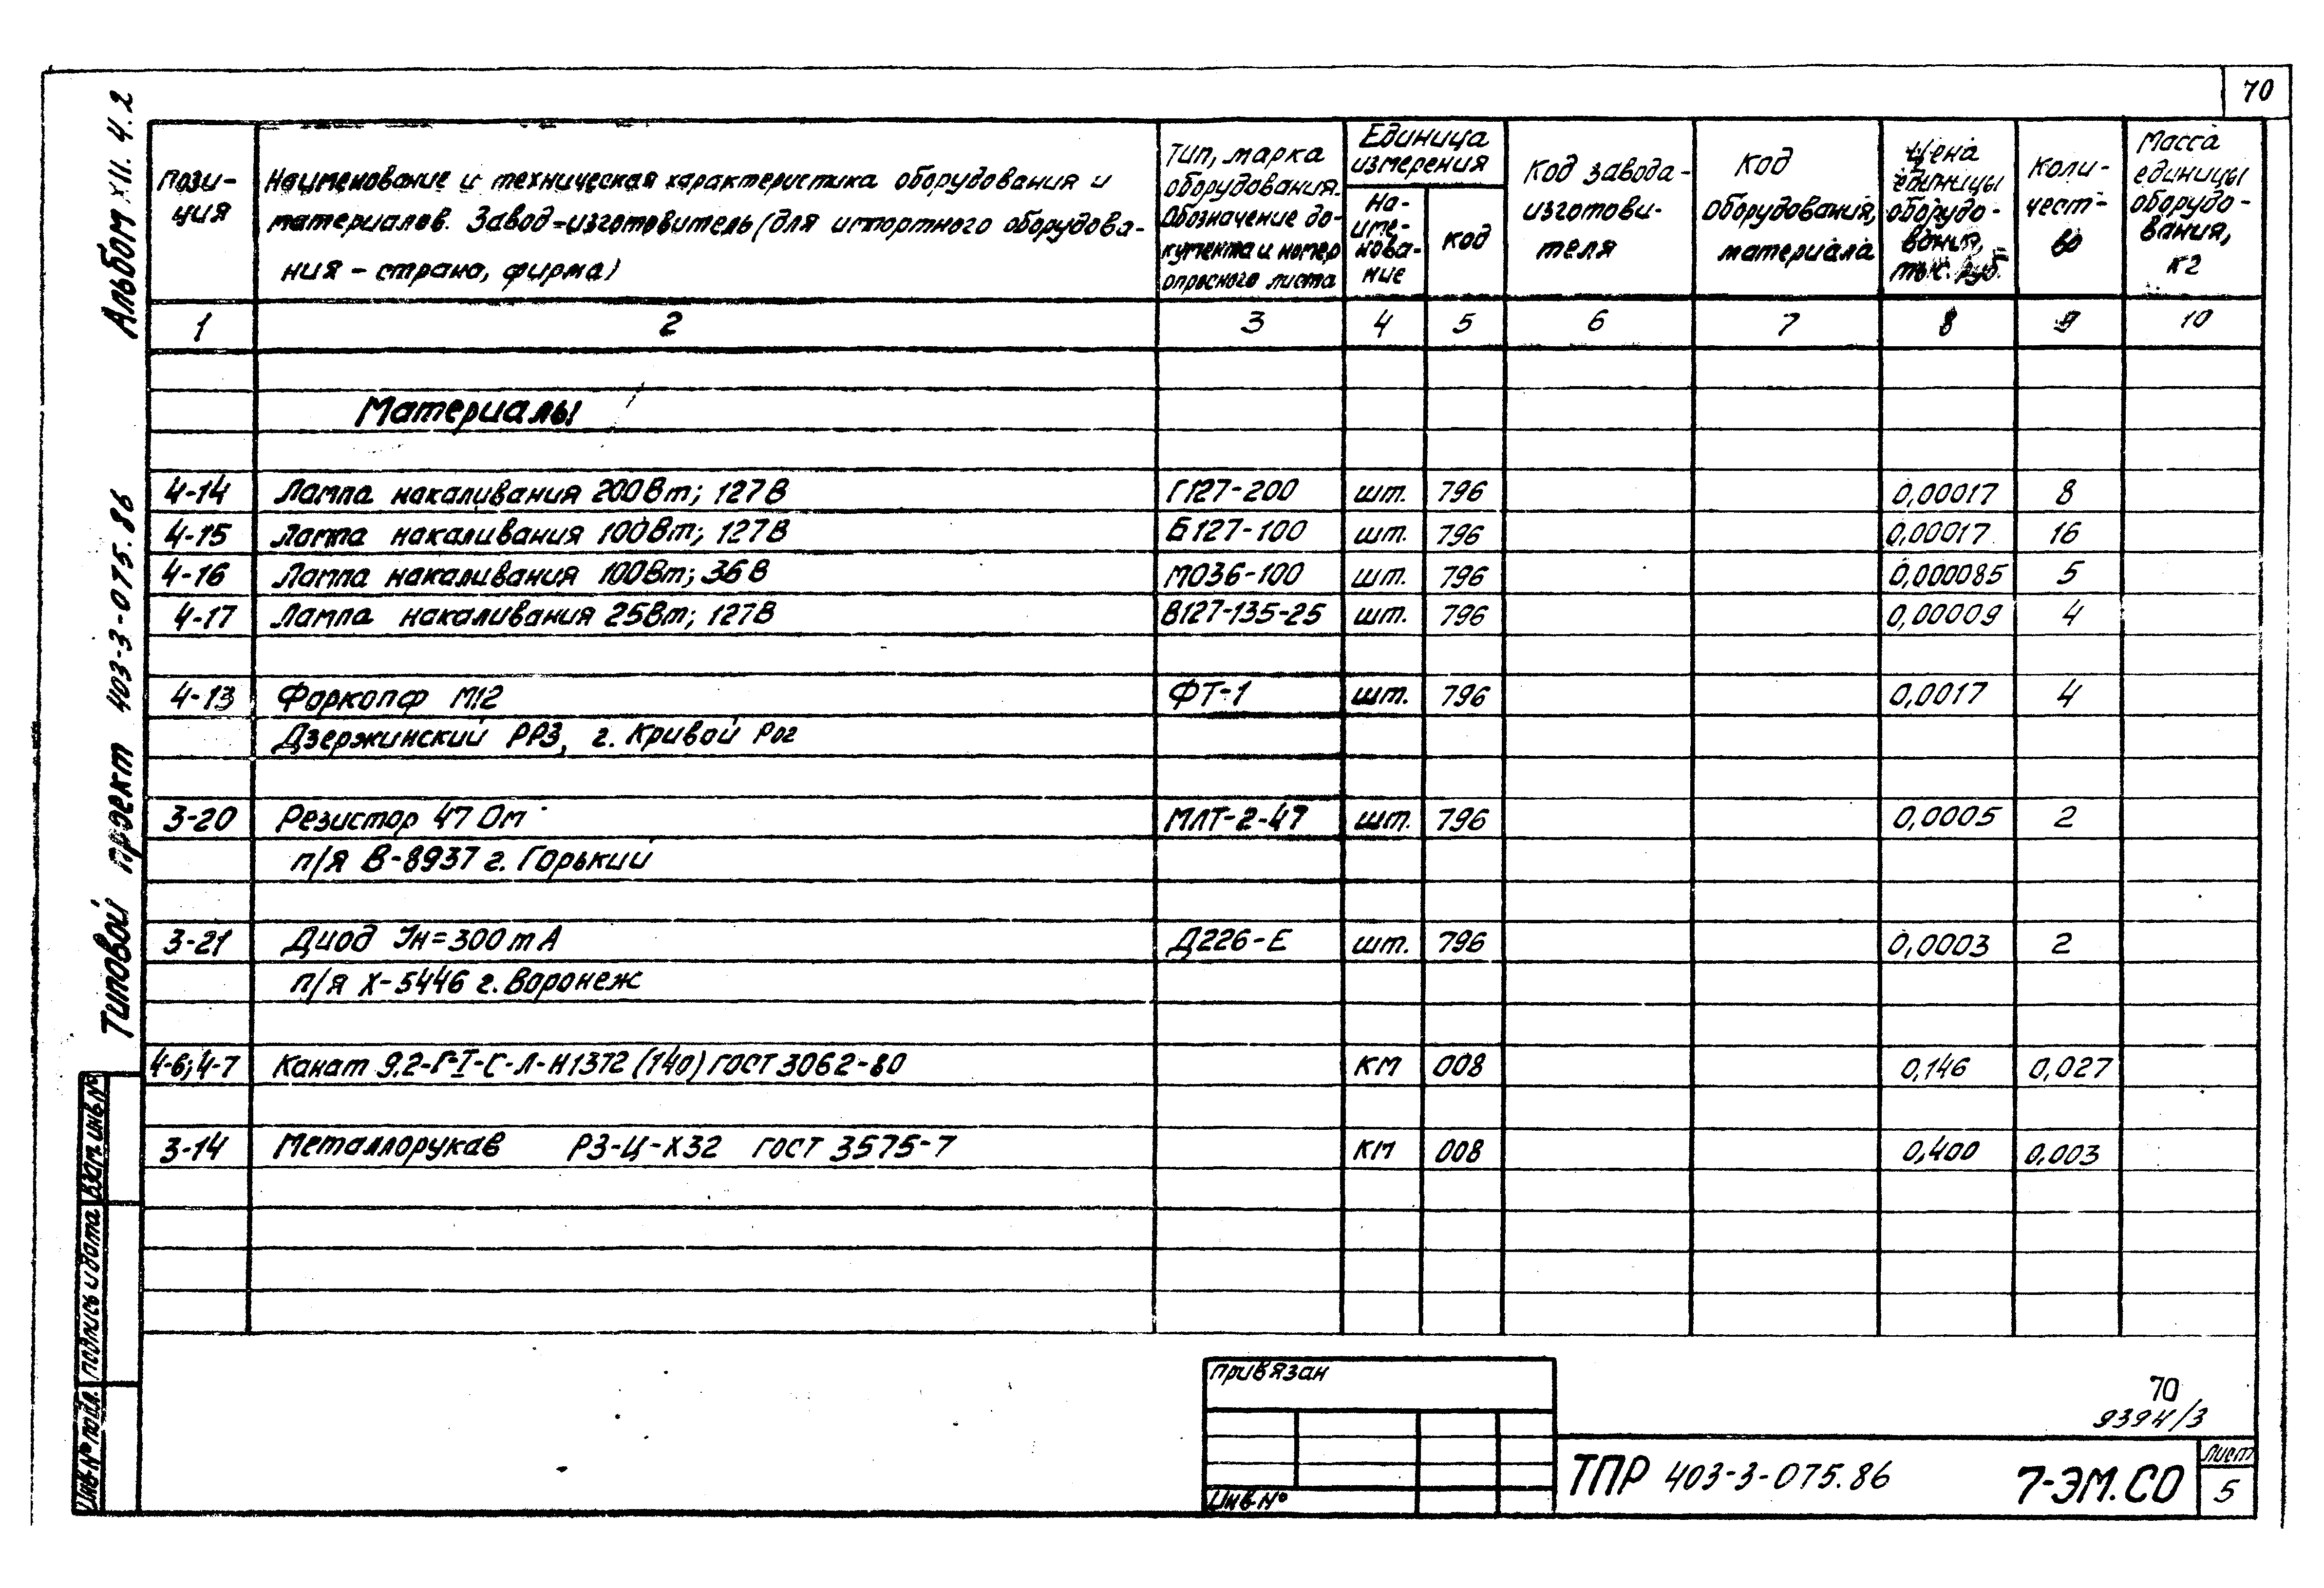 70
Альбом XII. Ч.2
Типовой проект 403-3-075.86
Пози-
ция
Наименование и техническая характеристика оборудования и
материалов. Завод-изготовитель (для импортного оборудова-
ния - страна, фирма)
Тип, марка
оборудования.
Обозначение до-
кумента и номер
опросного листа
Единица
измерения
На-
име-
нова-
ние
код
Код завода-
изготови-
теля
Код
оборудования,
материала
Цена
единицы
оборудо-
вания,
тыс. руб.
Коли-
чест-
во
Масса
единицы
оборудо-
вания,
кг
1 2 3 4 5 6 7 8 9 10
Материалы
4-14 Лампа накаливания 200Вт; 127В Г127-200 шт. 796 0,00017 8
4-15 Лампа накаливания 100Вт; 127В Б127-100 шт. 796 0,00017 16
4-16 Лампа накаливания 100Вт; 36В МО36-100 шт. 796 0,000085 5
4-17 Лампа накаливания 25Вт; 127В В127-135-25 шт. 796 0,00009 4
4-13 Форкопф М12 ФТ-1 шт. 796 0,0017 4
Дзержинский РРЗ, г. Кривой Рог
3-20 Резистор 47 Ом МЛТ-2-47 шт. 796 0,0005 2
п/я В-8937 г. Горький
3-21 Диод Iн=300mA Д226-Е шт. 796 0,0003 2
п/я Х-5446 г. Воронеж
4-6; 4-7 Канат 9.2-Г-I-С-Л-Н1372 (140) ГОСТ 3062-80 км 008 0,146 0,027
3-14 Металлорукав РЗ-Ц-Х32 ГОСТ 3575-7 км 008 0,400 0,003
Взам. инв. №
Подпись и дата
Инв. № подл.
Привязан
Инв. №
70
9394/3
ТПР 403-3-075.86 7-ЭМ.СО
Лист
5